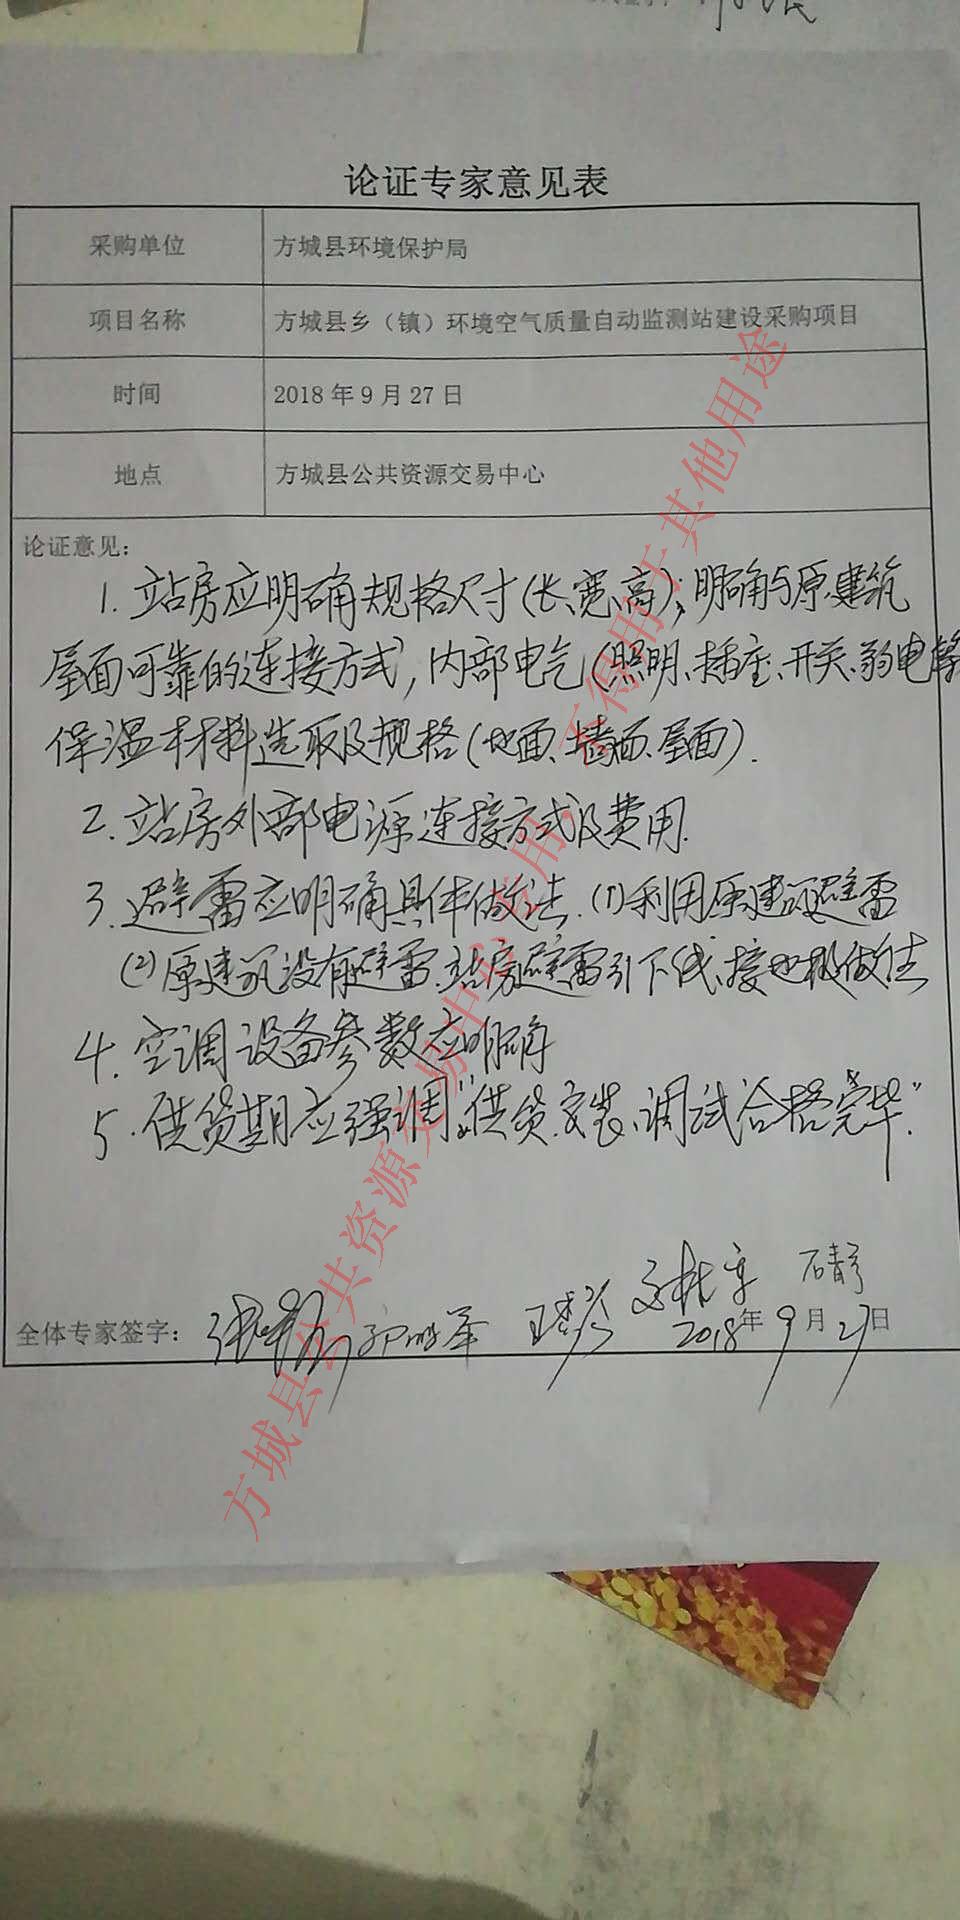 论证专家意见表
采购单位 方城县环境保护局
项目名称 方城县乡（镇）环境空气质量自动监测站建设采购项目
时间 2018 年 9 月 27 日
地点 方城县公共资源交易中心
论证意见：
1. 站房应明确规格尺寸(长、宽、高)；明确与原建筑
屋面可靠的连接方式，内部电气(照明、插座、开关、弱电等
保温材料选取及规格(地面、墙面、屋面).
2. 站房外部电源连接方式及费用.
3. 避雷应明确具体做法. (1)利用原建筑避雷
(2)原建筑没有避雷.站房避雷引下线、接地极做法
4. 空调设备参数应明确
5. 供货期应强调"供货.安装、调试合格完毕".
石青
全体专家签字：
2018年9月27日
方城县公共资源交易中心专用 不得用于其他用途